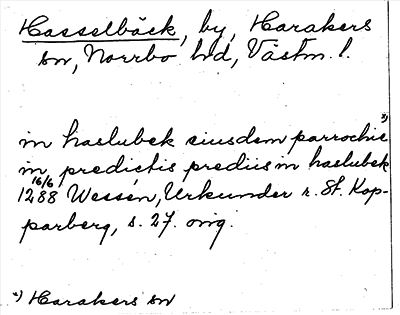 Hasselbäck, by, Harakers
sn, Norrbo hd, Västm. l.
in haslubek eiusdem parrochie *)
in predictis prediis in haslubek
16/6 1288 Wessén, Urkunder r. St. Kop-
parberg, s. 27. orig.
*) Harakers sn